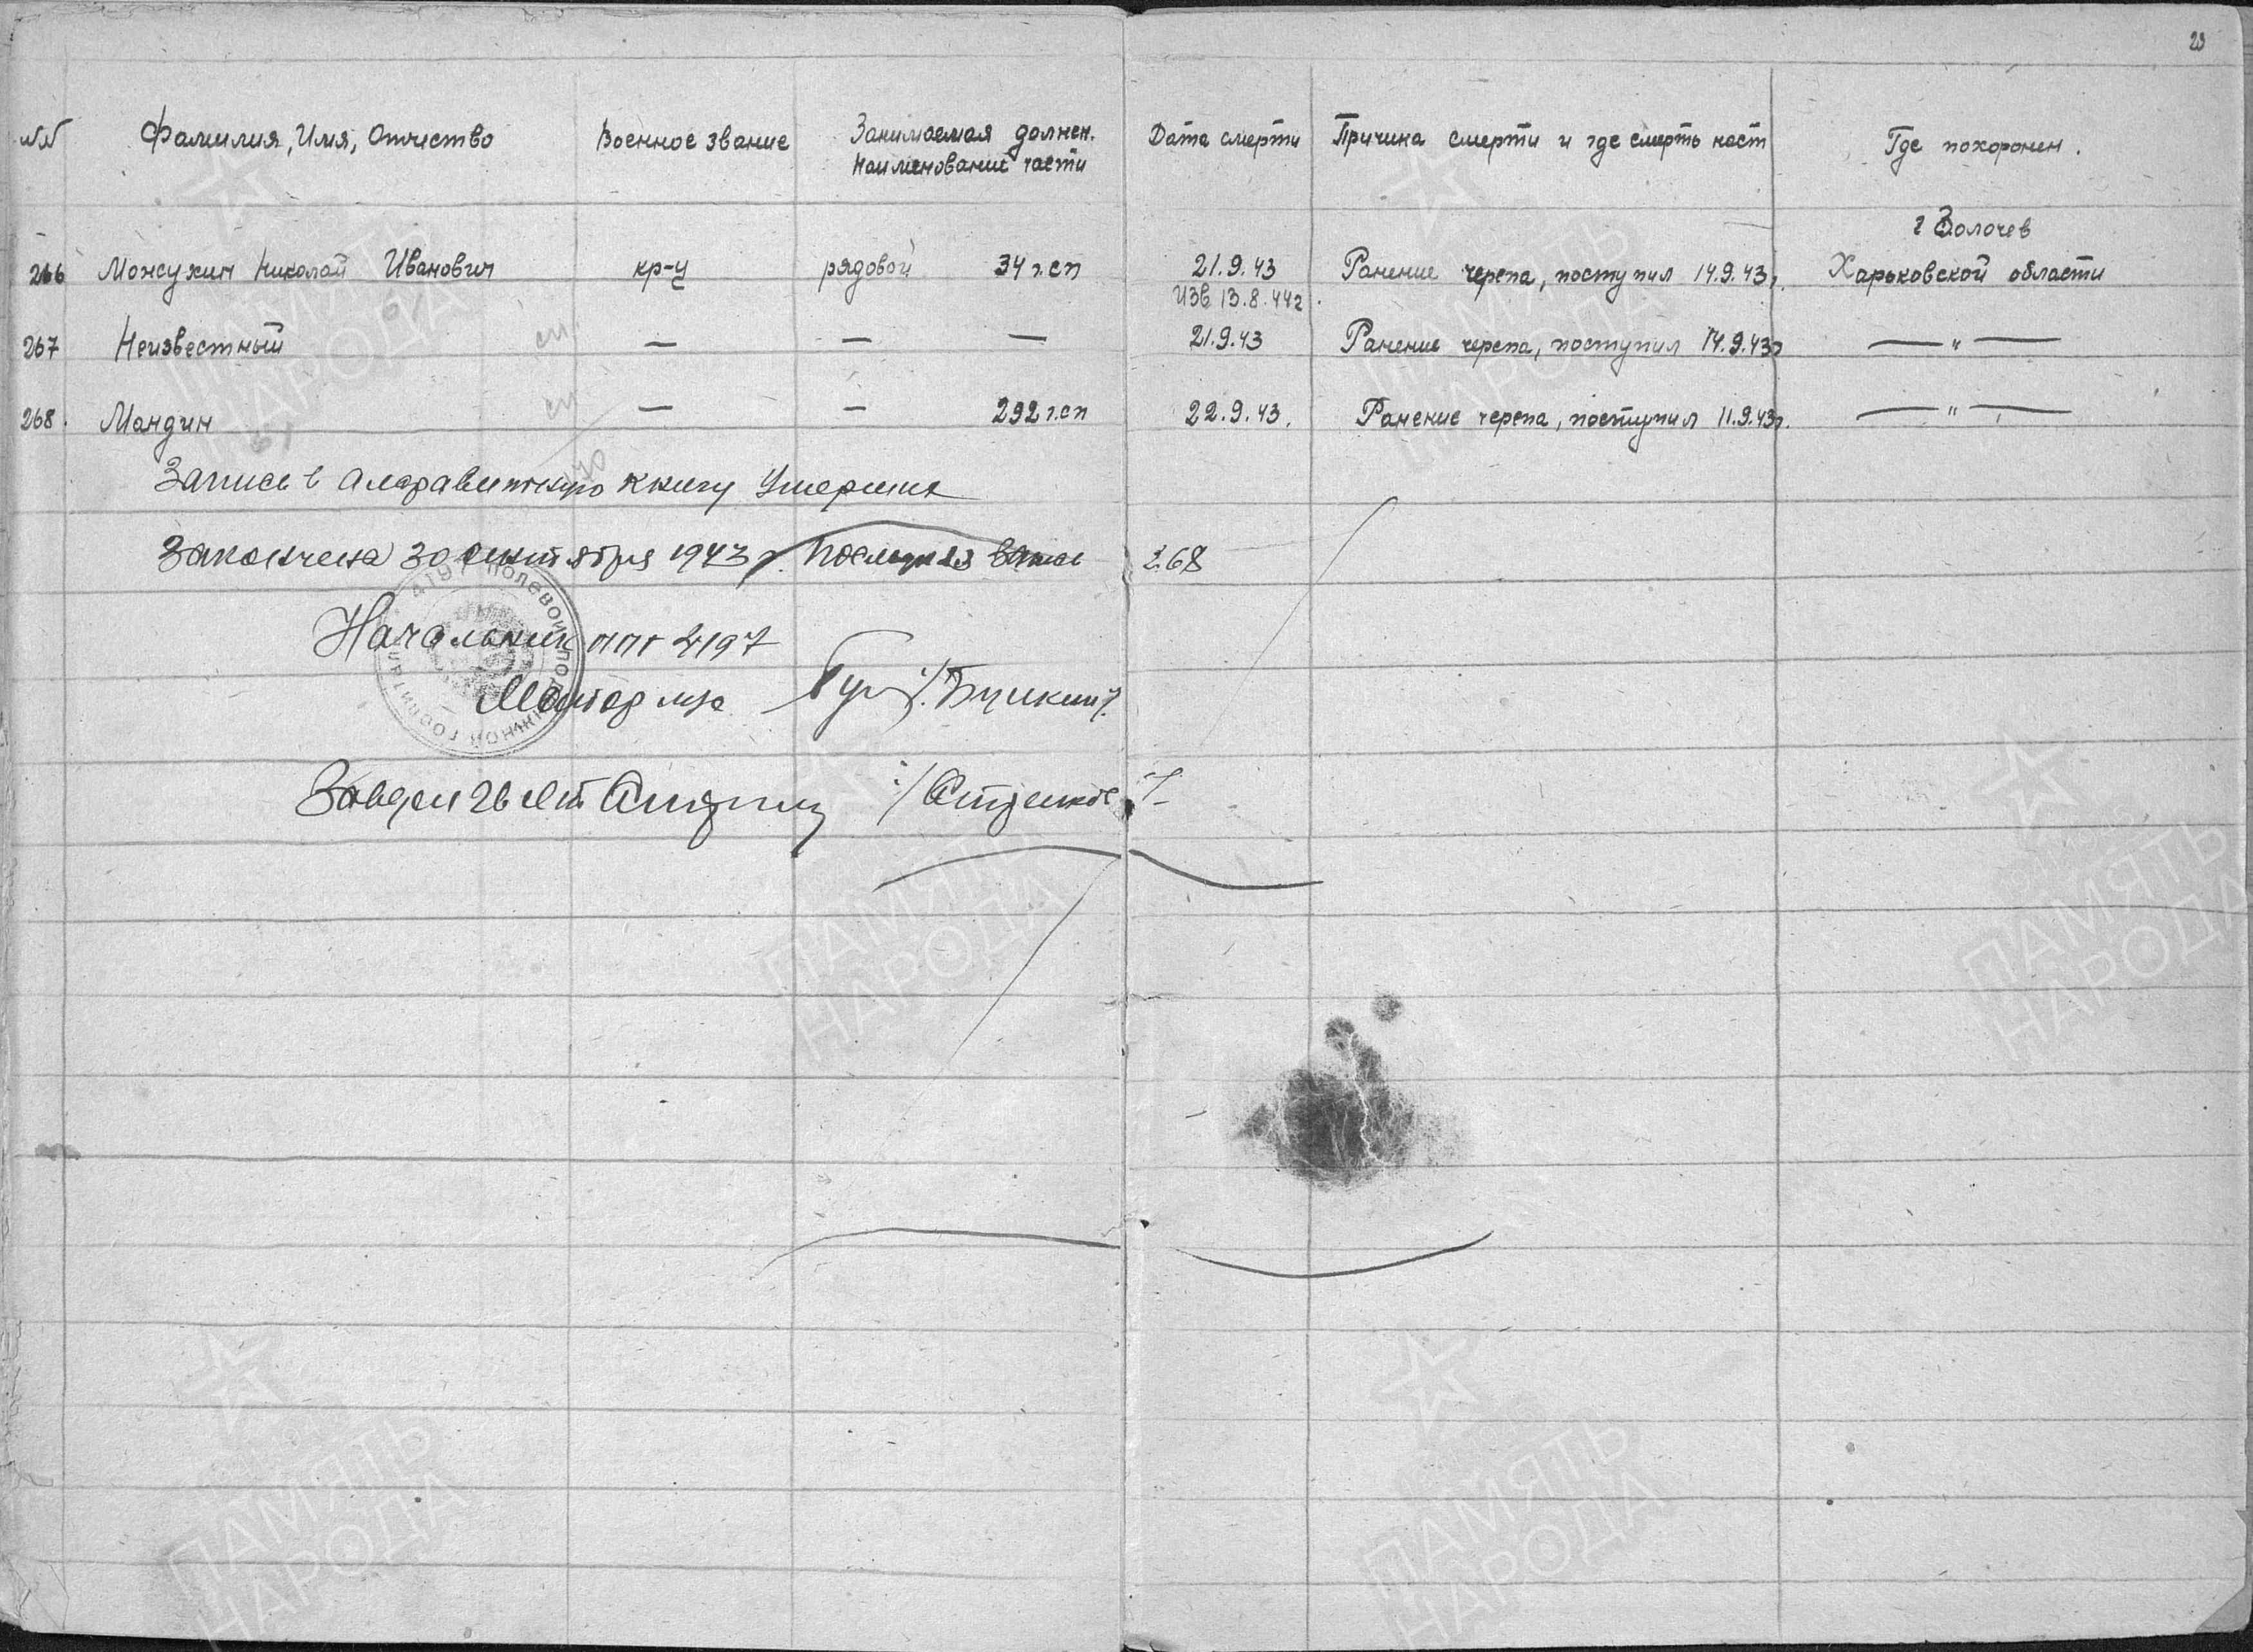 23
№№ Фамилия, Имя, Отчество Военное звание Занимаемая должен. Дата смерти Причина смерти и где смерть наст Где похоронен.
Наименование части
г Золочев
266 Мансухин Николай Иванович кр-ц рядовой 34 г.сп 21.9.43 Ранение черепа, поступил 14.9.43г. Харьковской области
Изв 13.8.44г.
267 Неизвестный — — — 21.9.43 Ранение черепа, поступил 14.9.43г — " —
268. Мандин — — 292 г.сп 22.9.43. Ранение черепа, поступил 11.9.43г. — " —
Запись в алфавитную книгу умерших
Закончена 30 сентября 1943 г. Последняя запись 268
Начальник ппг 4197
Майор м/с
Завдел
4197 ПОЛЕВОЙ ПОДВИЖНОЙ ГОСПИТАЛЬ
ПАМЯТЬ
НАРОДА
ПАМЯТЬ
НАРОДА
ПАМЯТЬ
НАРОДА
ПАМЯТЬ
НАРОДА
ПАМЯТЬ
НАРОДА
ПАМЯТЬ
НАРОДА